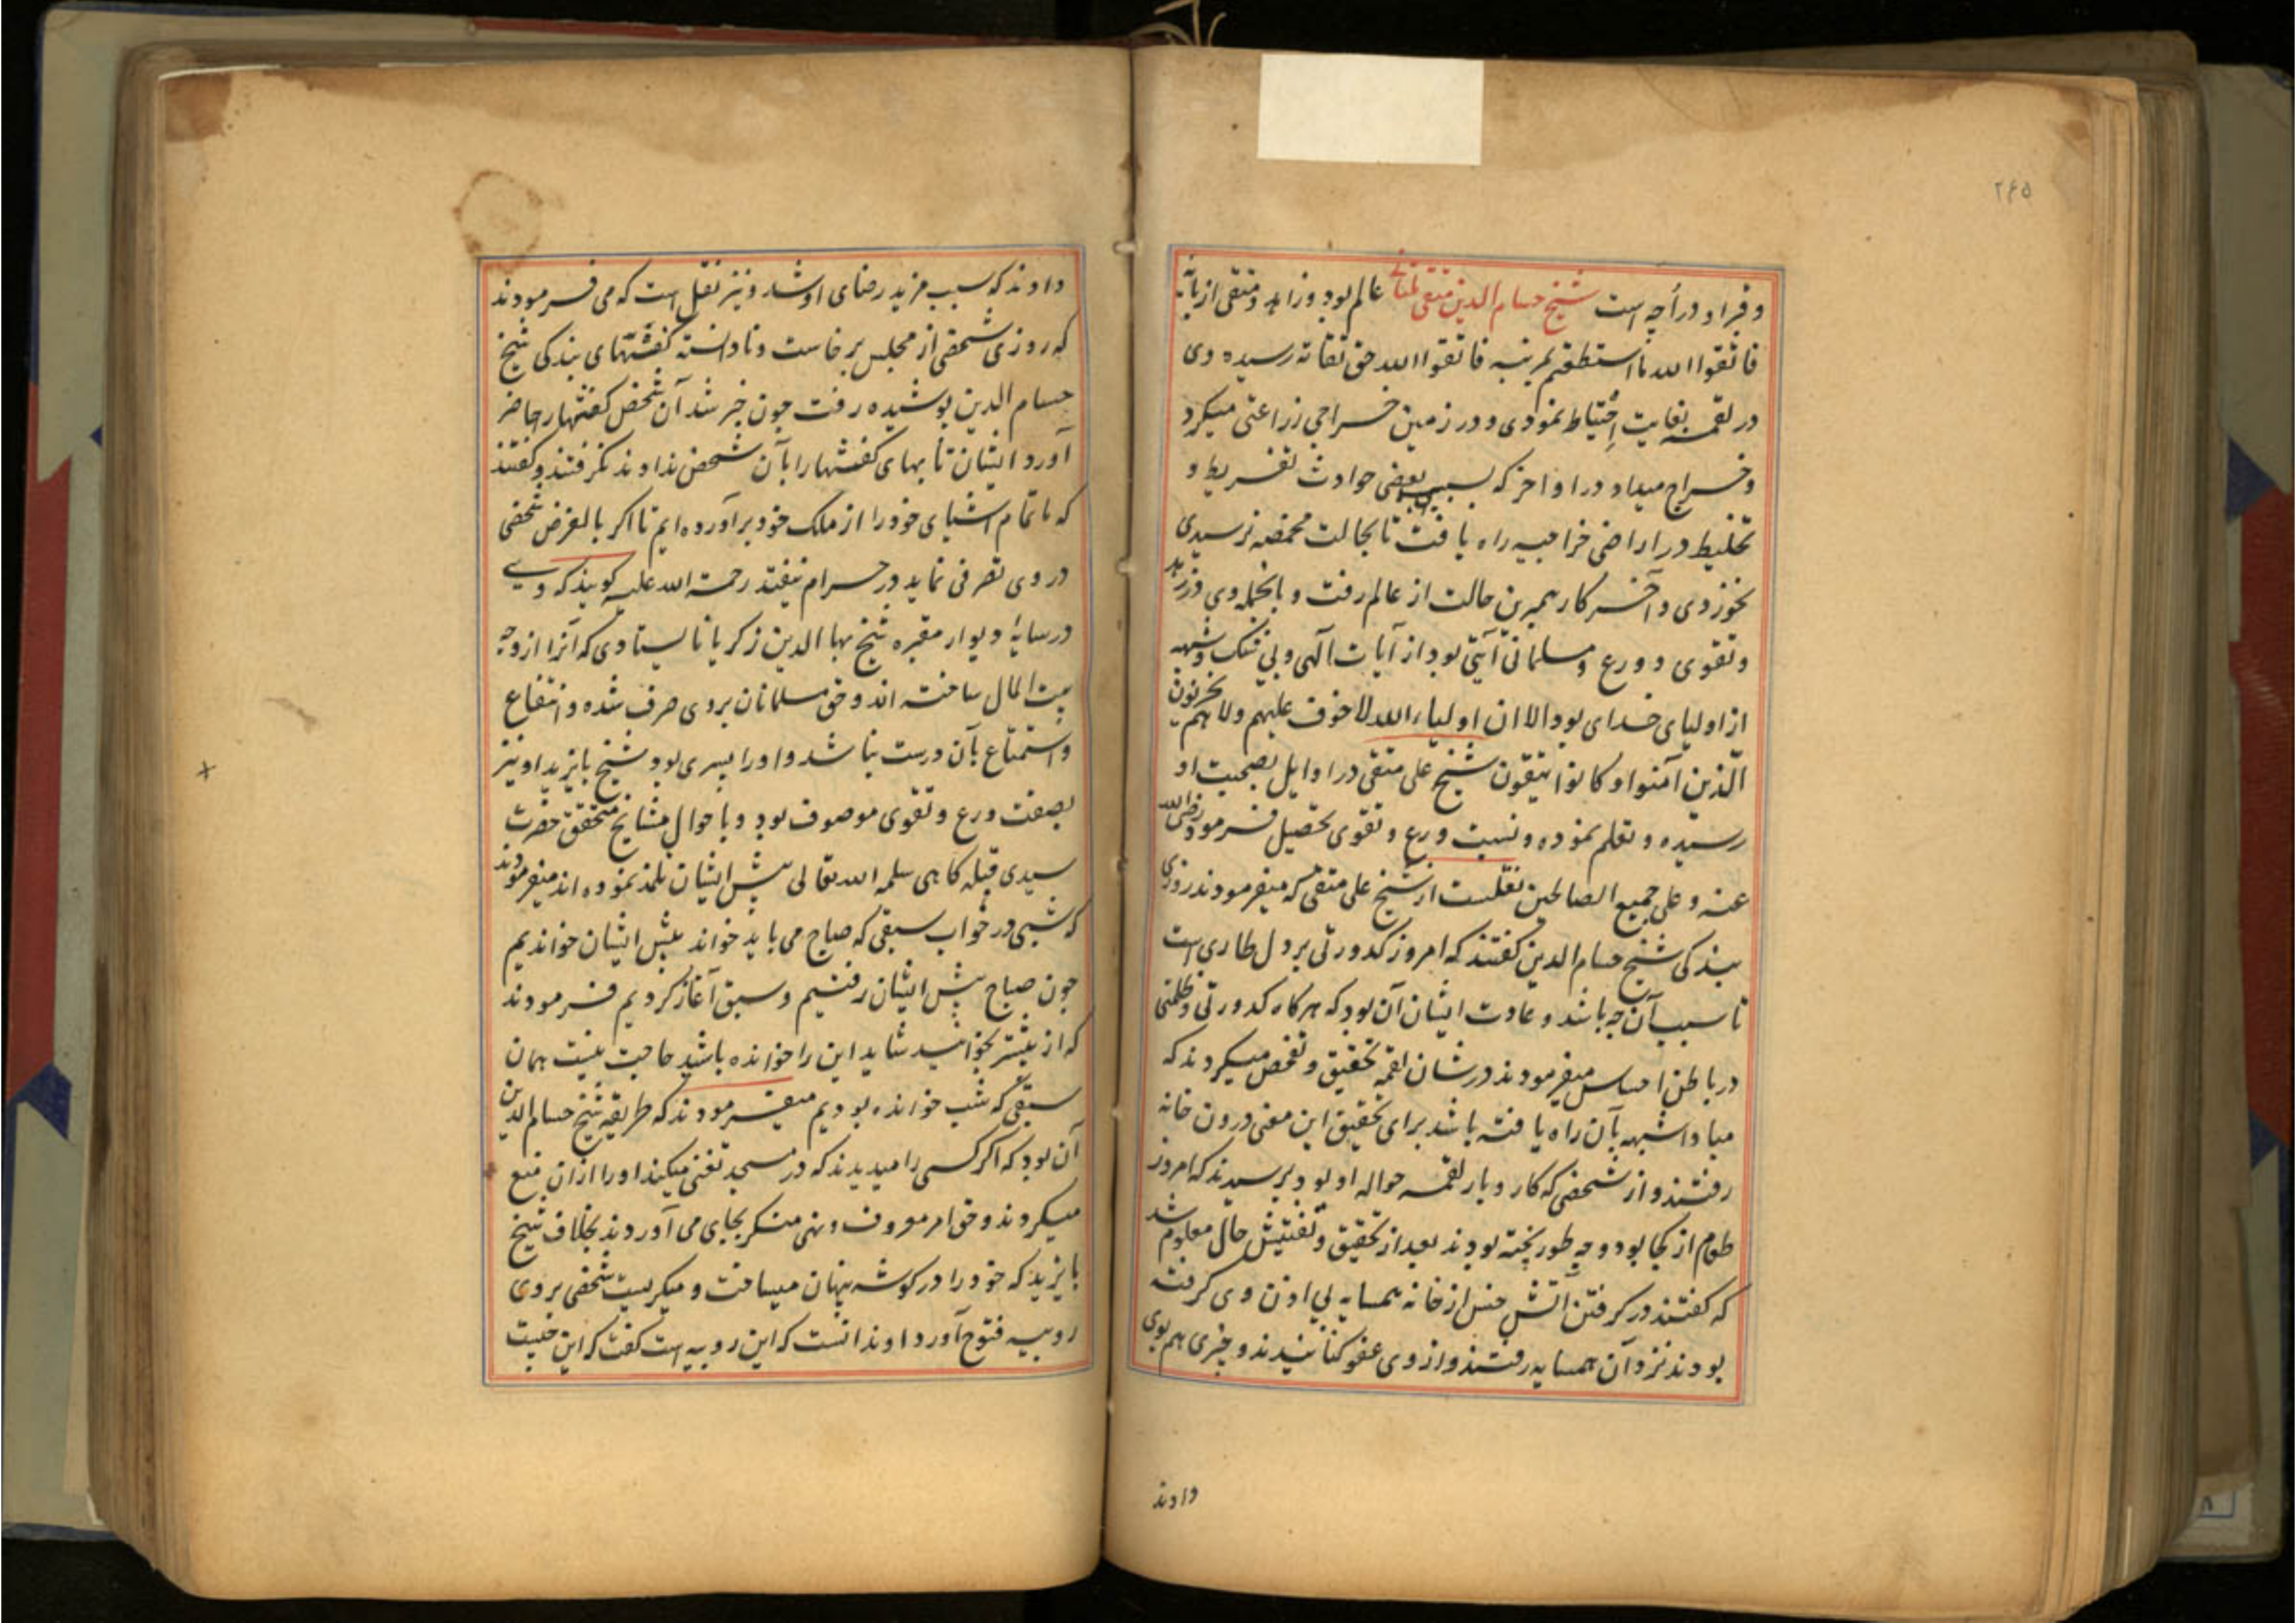 ۲۶۵
وقبر او در اُچه است شیخ حسام الدین متقی ملتانی عالم بود و زاهد و متقی از بآیه
فاتقوا الله ما استطعتم بمرتبه فاتقوا الله حق تقاته رسیده وی
در لقمه بغایت احتیاط نمودی و در زمین خراجی زراعتی میکرد
وخراج میداد در اواخر که بسبب بعضی حوادث تفریط و
تخلیط در اراضی خراجیه راه یافت تا بحالت مخمصه نرسیدی
نخوردی و آخر کار بهمین حالت از عالم رفت و بالجمله وی در زهد
وتقوی و ورع و مسلمانی آیتی بود از آیات الهی و بی شک وشبهه
از اولیای خدای بود الا ان اولیاء الله لا خوف علیهم ولا هم یحزنون
الذین آمنوا و کانوا یتقون شیخ علی متقی در اوایل بصحبت او
رسیده و تعلم نموده و نسبت ورع و تقوی تحصیل فرمود رضی الله
عنه و علی جمیع الصالحین نقلست از شیخ علی متقی که میفرمودند روزی
بندکی شیخ حسام الدین کفتند که امروز کدورتی بر دل طاری است
تا سبب آن چه باشد و عادت ایشان آن بود که هر کاه کدورتی وظلمتی
در باطن احساس میفرمودند در شان لقمه تحقیق و تفحص میکردند که
مبادا شبهه بآن راه یافته باشد برای تحقیق این معنی درون خانه
رفتند و از شخصی که کار و بار لقمه حواله او بود پرسیدند که امروز
طعام از کجا بود و چه طور پخته بودند بعد از تحقیق و تفتیش حال معلوم شد
که کفتند در کرفتن آتش خس از خانه همسایه بی اذن وی کرفته
بودند نزد آن همسایه رفتند و از وی عفو کنانیدند و چیزی هم بوی
دادند
دادند که سبب مزید رضای او شد و نیز نقل است که می فرمودند
که روزی شخصی از مجلس برخاست و نادانسته کفشهای بندکی شیخ
حسام الدین پوشیده رفت چون خبر شد آن شخص کفشها را حاضر
آورد ایشان تا بهای کفشها را بآن شخص ندادند نکرفتند و کفتند
که ما تمام اشیای خود را از ملک خود برآورده ایم تا اکر بالفرض شخصی
در وی تصرفی نماید در حرام نیفتد رحمة الله علیه کویند که وی
در سایهٔ دیوار مقبره شیخ بها الدین زکریا نا یستادی که آنرا از وجه
بیت المال ساخته اند و حق مسلمانان بر وی صرف شده و انتفاع
واستمتاع بآن درست نباشد و او را پسری بود شیخ بایزید او نیز
بصفت ورع و تقوی موصوف بود و باحوال مشایخ متحقق حضرت
سیدی قبله کاهی سلمه الله تعالی پیش ایشان تلمذ نموده اند میفرمودند
که شبی در خواب سبقی که صباح می باید خواند پیش ایشان خواندیم
چون صباح پیش ایشان رفتیم و سبق آغاز کردیم فرمودند
که از پیشتر بخوانید شاید این را خوانده باشید حاجت نیست همان
سبقی که شب خوانده بودیم میفرمودند که طریقه شیخ حسام الدین
آن بود که اکر کسی را میدیدند که در مسجد تغنی میکند او را از ان منع
میکردند و حق امر معروف و نهی منکر بجای می آوردند بخلاف شیخ
بایزید که خود را در کوشه پنهان میساخت و میکریست شخصی بر وی
روپیه فتوح آورد او ندانست که این روپیه است کفت که این چیست